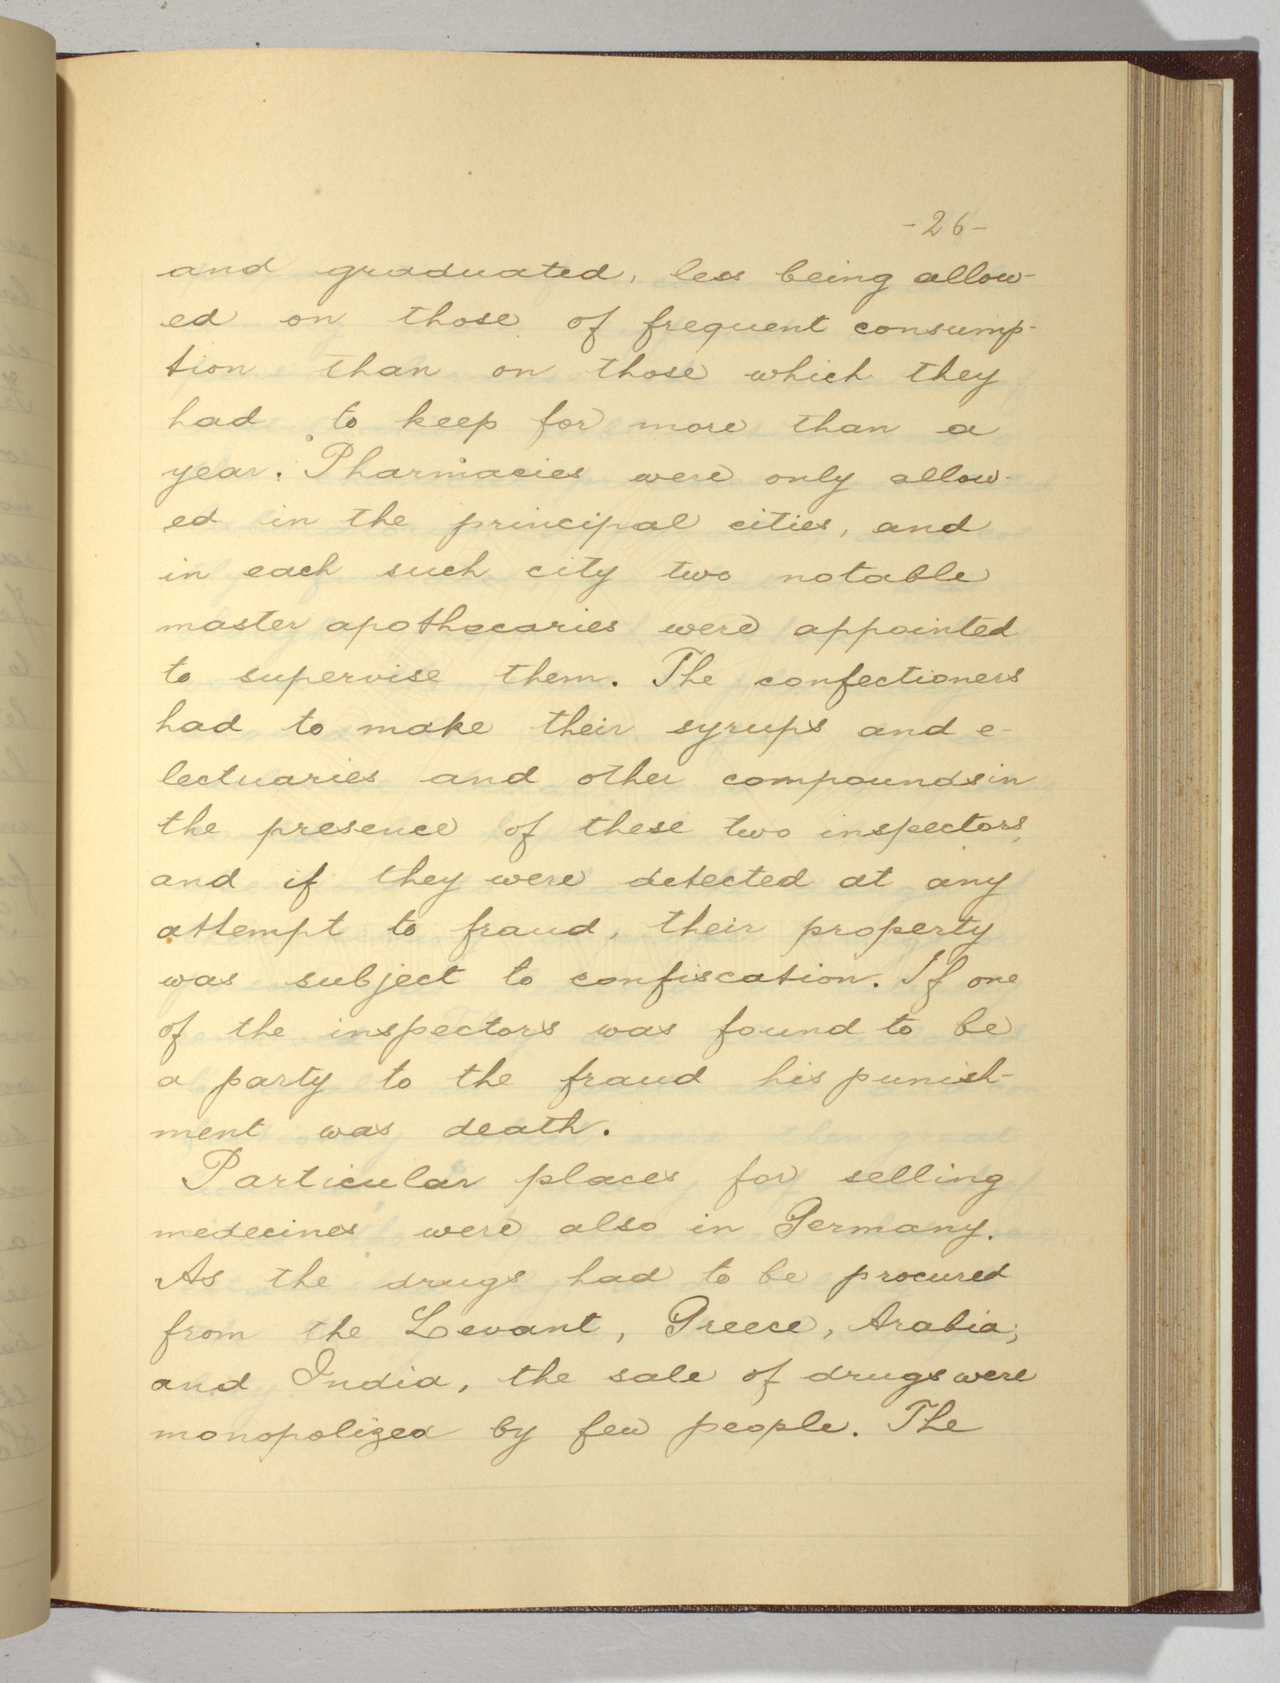 -26-
and graduated, less being allow-
ed on those of frequent consump-
tion than on those which they
had to keep for more than a
year. Pharmacies were only allow-
ed in the principal cities, and
in each such city two notable
master apothecaries were appointed
to supervise them. The confectioners
had to make their syrups and e-
lectuaries and other compounds in
the presence of these two inspectors,
and if they were detected at any
attempt to fraud, their property
was subject to confiscation. If one
of the inspectors was found to be
a party to the fraud his punish-
ment was death.
Particular places for selling
medecines were also in Germany.
As the drugs had to be procured
from the Levant, Greece, Arabia,
and India, the sale of drugs were
monopolized by few people. The